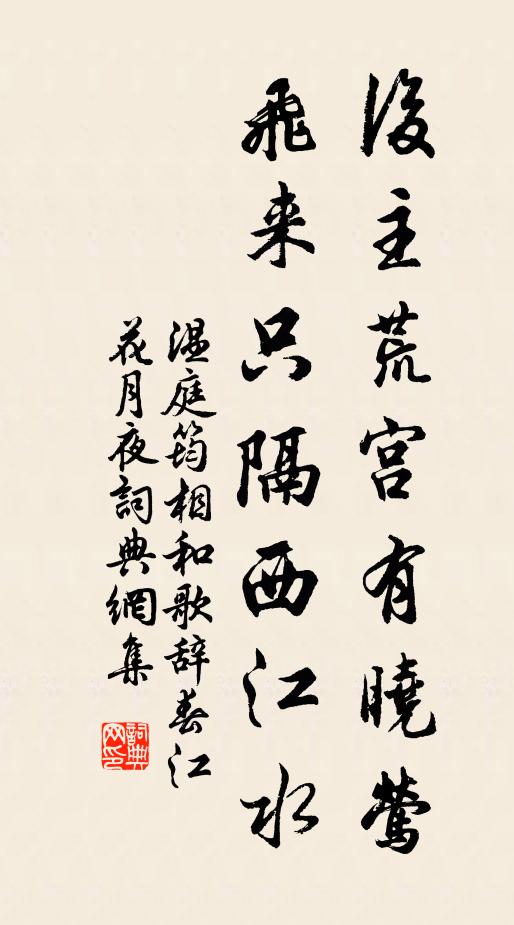 後主荒宫有曉鶯
飛来只隔西江水
温庭筠相和歌辞春江
花月夜詞典網集
詞典
网印